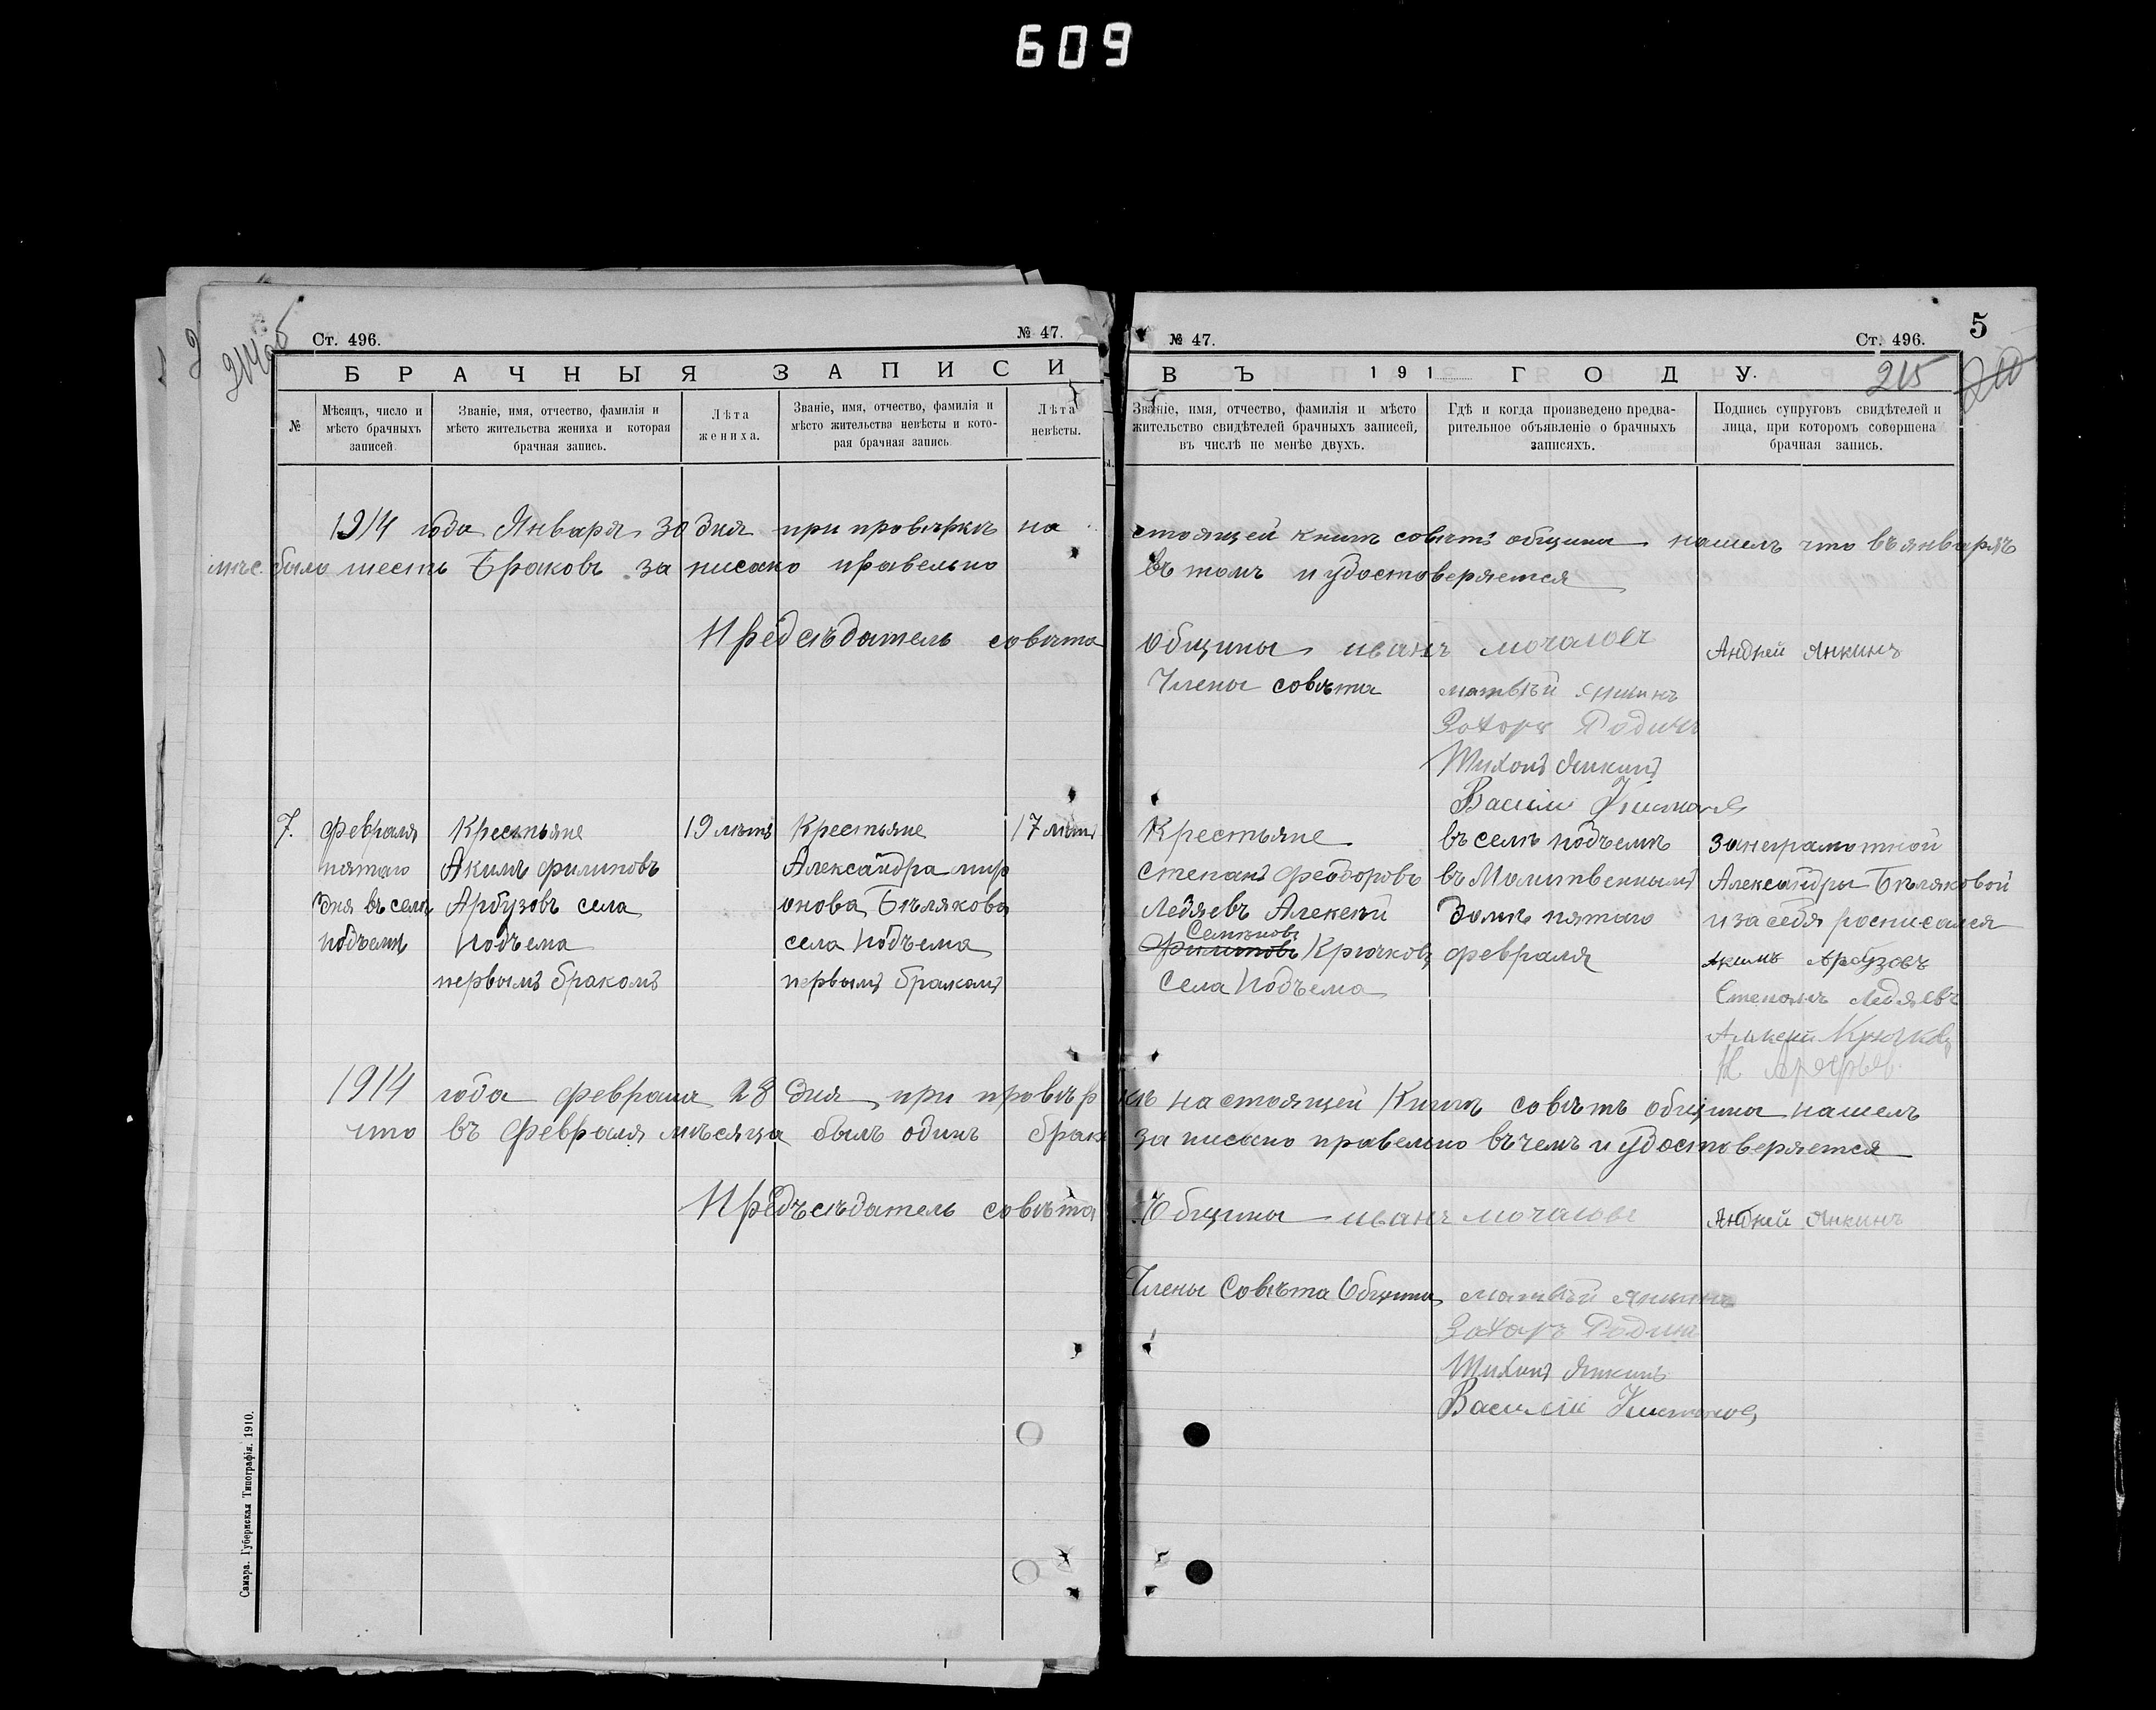 609
214 об
Ст. 496.
№ 47.
БРАЧНЫЯ ЗАПИСИ
№
Мѣсяцъ, число и
мѣсто брачныхъ
записей
Званіе, имя, отчество, фамилія и
мѣсто жительства жениха и которая
брачная запись.
Лѣта
жениха.
Званіе, имя, отчество, фамилія и
мѣсто жительства невѣсты и кото-
рая брачная запись
Лѣта
невѣсты.
1914 года Января 30 дня при провѣркѣ на
мѣс. было шесть Браковъ за писано правельно
Председатель совѣта
7.
февраля
пятаго
дня въ селѣ
подъемѣ
Крестьяне
Акимъ филиповъ
Арбузовъ села
Подъема
первымъ бракомъ
19 лѣтъ
Крестьяне
Александра мир
онова Бѣлякова
села Подъема
первымъ бракомъ
17 лѣтъ
1914 года февраля 28 дня при провѣр
что въ февраля мѣсяца былъ одинъ брак
Предъсѣдатель совѣта
Самара. Губернская Типографія. 1910.
№ 47.
Ст. 496.
5
ВЪ 191 ГОДУ.
215
210
Званіе, имя, отчество, фамилія и мѣсто
жительство свидѣтелей брачныхъ записей,
въ числѣ не менѣе двухъ.
Гдѣ и когда произведено предва-
рительное объявленіе о брачныхъ
записяхъ.
Подпись супруговъ свидѣтелей и
лица, при которомъ совершена
брачная запись.
стоящей книги совѣтъ общины нашелъ что въ январѣ
въ томъ и удостоверяется
Общины иванъ мочаловъ Андрей Янкинъ
Члены совѣта матвѣй Янкинъ
Захаръ Родинъ
Тихонъ Янкинъ
Василій
Крестьяне
Степанъ Феодоровъ
Ледяевъ Алексѣй
Семеновъ
Филиповъ Крючковъ
Села Подъема
въ селѣ подъемѣ
въ Молитвенномъ
Доме пятаго
февраля
за неграмотной
Александры Бѣляковой
и за себя росписался
Акимъ Арбузовъ
Степанъ Ледяевъ
Алексей Крючковъ
кѣ настоящей Книги совѣтъ общины нашелъ
за писано правельно въ чемъ и удостоверяется
Общины иванъ мочаловъ Андрей Янкинъ
Члены Совѣта Общины матвѣй Янкинъ
Захаръ Родинъ
Тихонъ Янкинъ
Василій